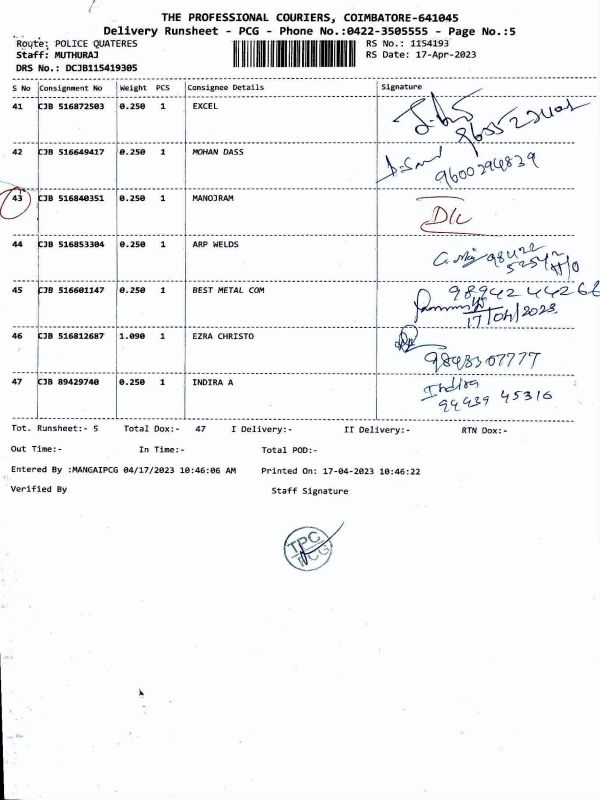 THE PROFESSIONAL COURIERS, COIMBATORE-641045
Delivery Runsheet - PCG - Phone No.:0422-3505555 - Page No.:5
Route: POLICE QUATERES RS No.: 1154193
Staff: MUTHURAJ RS Date: 17-Apr-2023
DRS No.: DCJB115419305
S No Consignment No Weight PCS Consignee Details Signature
41 CJB 516872503 0.250 1 EXCEL
42 CJB 516649417 0.250 1 MOHAN DASS
9600294839
43 CJB 516840351 0.250 1 MANOJRAM
D/c
44 CJB 516853304 0.250 1 ARP WELDS
45 CJB 516601147 0.250 1 BEST METAL COM
9894244266
17/04/2023
46 CJB 516812687 1.090 1 EZRA CHRISTO
9848307777
47 CJB 89429740 0.250 1 INDIRA A
Indira
94439 45316
Tot. Runsheet:- 5 Total Dox:- 47 I Delivery:- II Delivery:- RTN Dox:-
Out Time:- In Time:- Total POD:-
Entered By :MANGAIPCG 04/17/2023 10:46:06 AM Printed On: 17-04-2023 10:46:22
Verified By Staff Signature
TPC
PCG